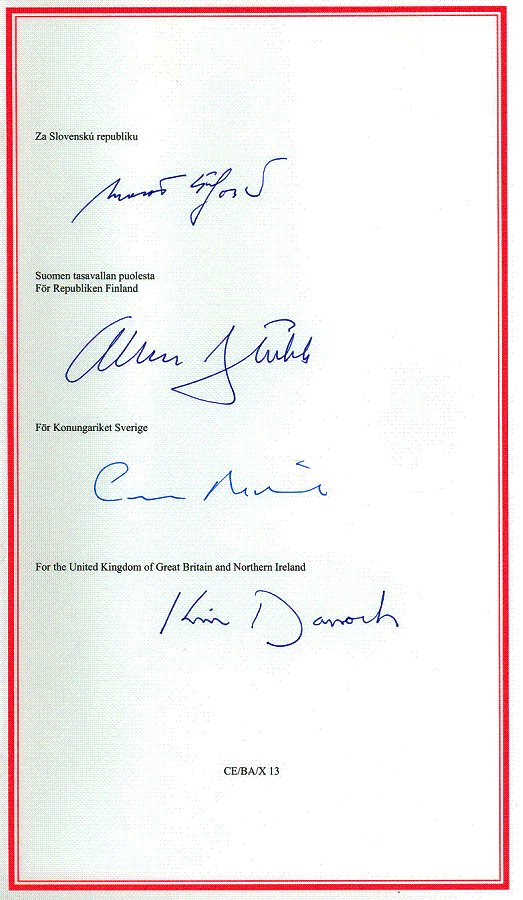 Za Slovenskú republiku
Suomen tasavallan puolesta
För Republiken Finland
För Konungariket Sverige
For the United Kingdom of Great Britain and Northern Ireland
Kim Darroch
CE/BA/X 13